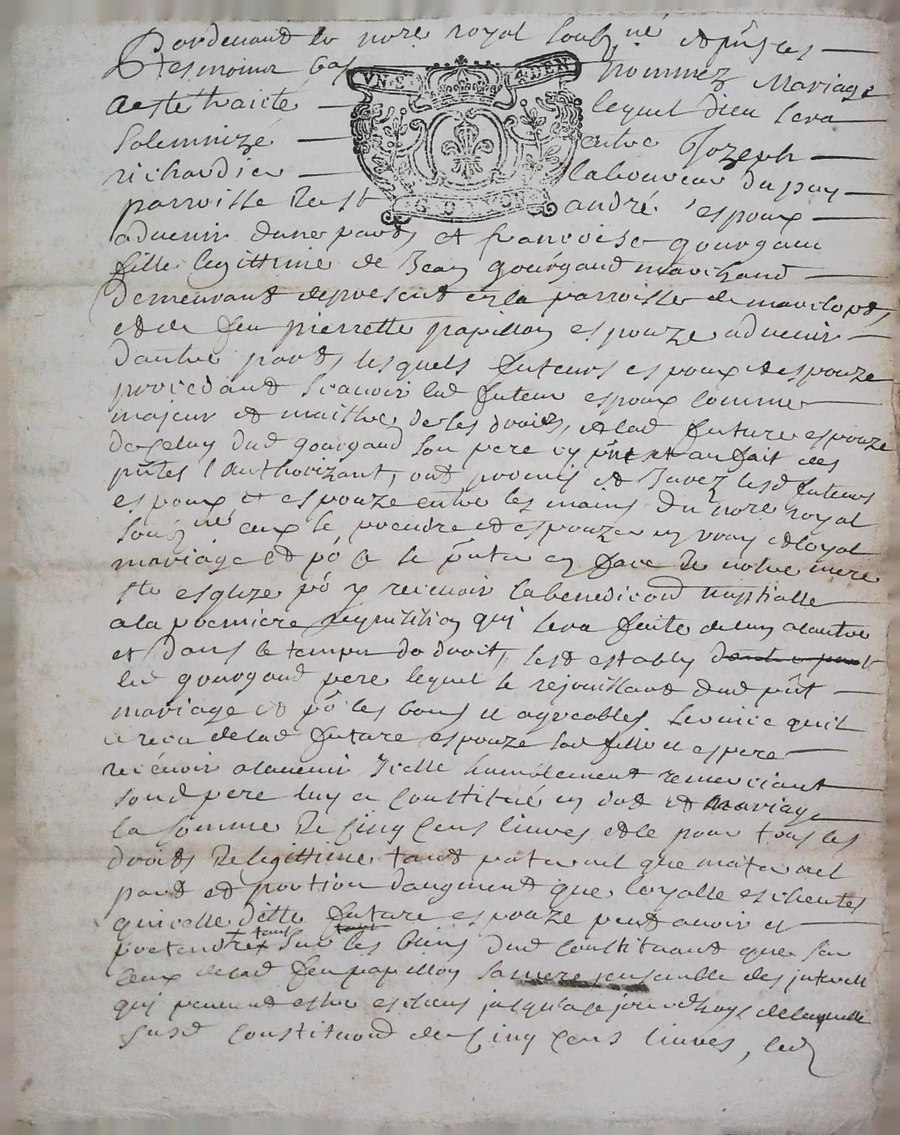 Pardevant le nore royal soubzné et p̃ns les
tesmoins bas nommez Mariage
a este traicté lequel dieu sera
solemnizé entre Jozeph
richardier laboureur du puy
parroisse de st andré espoux
advenir dune part, et francoise gourgaud
fille legittime de Jean gourgaud marchand
demeurant de present en la parroisse de
et de feu pierrette papillon espouze advenir
dautre part, lesquels futeurs espoux et espouze
procedant scavoir led futeur espoux comme
majeur et maistre de ses droits, et lad future espouze
de celuy dud gourgaud son pere cy p̃nt et au fait des
p̃ntes l'authorizant, ont promis et Jurez lesd futeurs
espoux et espouze entre les mains du nore royal
soubzné eux se prendre et espouzer en vray et loyal
mariage et po ce se p̃nter en face de nostre mere
ste esglize po y recevoir la benediction nuptialle
a la premiere requisition qui sera faite de lun a lautre
et dans le temps de droit, led estably
led gourgaud pere lequel se rejouissant dud p̃nt
mariage et po les bons et agreables service quil
a receu de lad future espouze sad fille et espere
recevoir a ladvenir Icelle humblement remerciant
sond pere luy a constitué en dot et mariage
la somme de cinq cens livres et ce pour tous les
droits de legittime tant paternel que maternel
part et portion daugment que loyalle escheutes
quicelle ditte future espouze peut avoir et
pretendre tant sur les biens dud constituant que sur
ceux de lad feu papillon sa mere ensemble des interest
qui peuvent estre escheus jusqu'a ce jourdhuy de laquelle
susd constituon de cinq cens livres, led